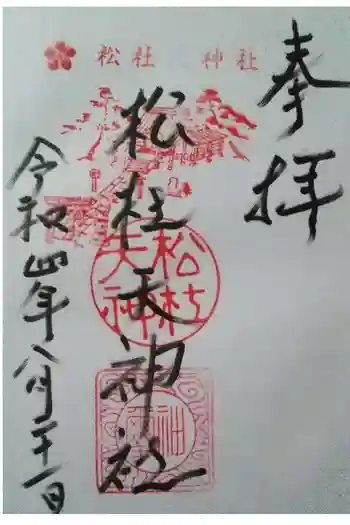 奉拝
松社天神社
令和四年八月二十一日
松社天神社
松社
天神